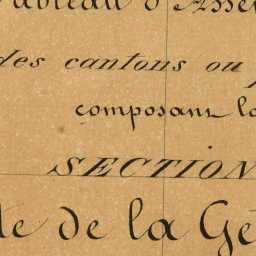 Tableau d'Asse
des cantons ou
composant la
SECTION
de la Gé